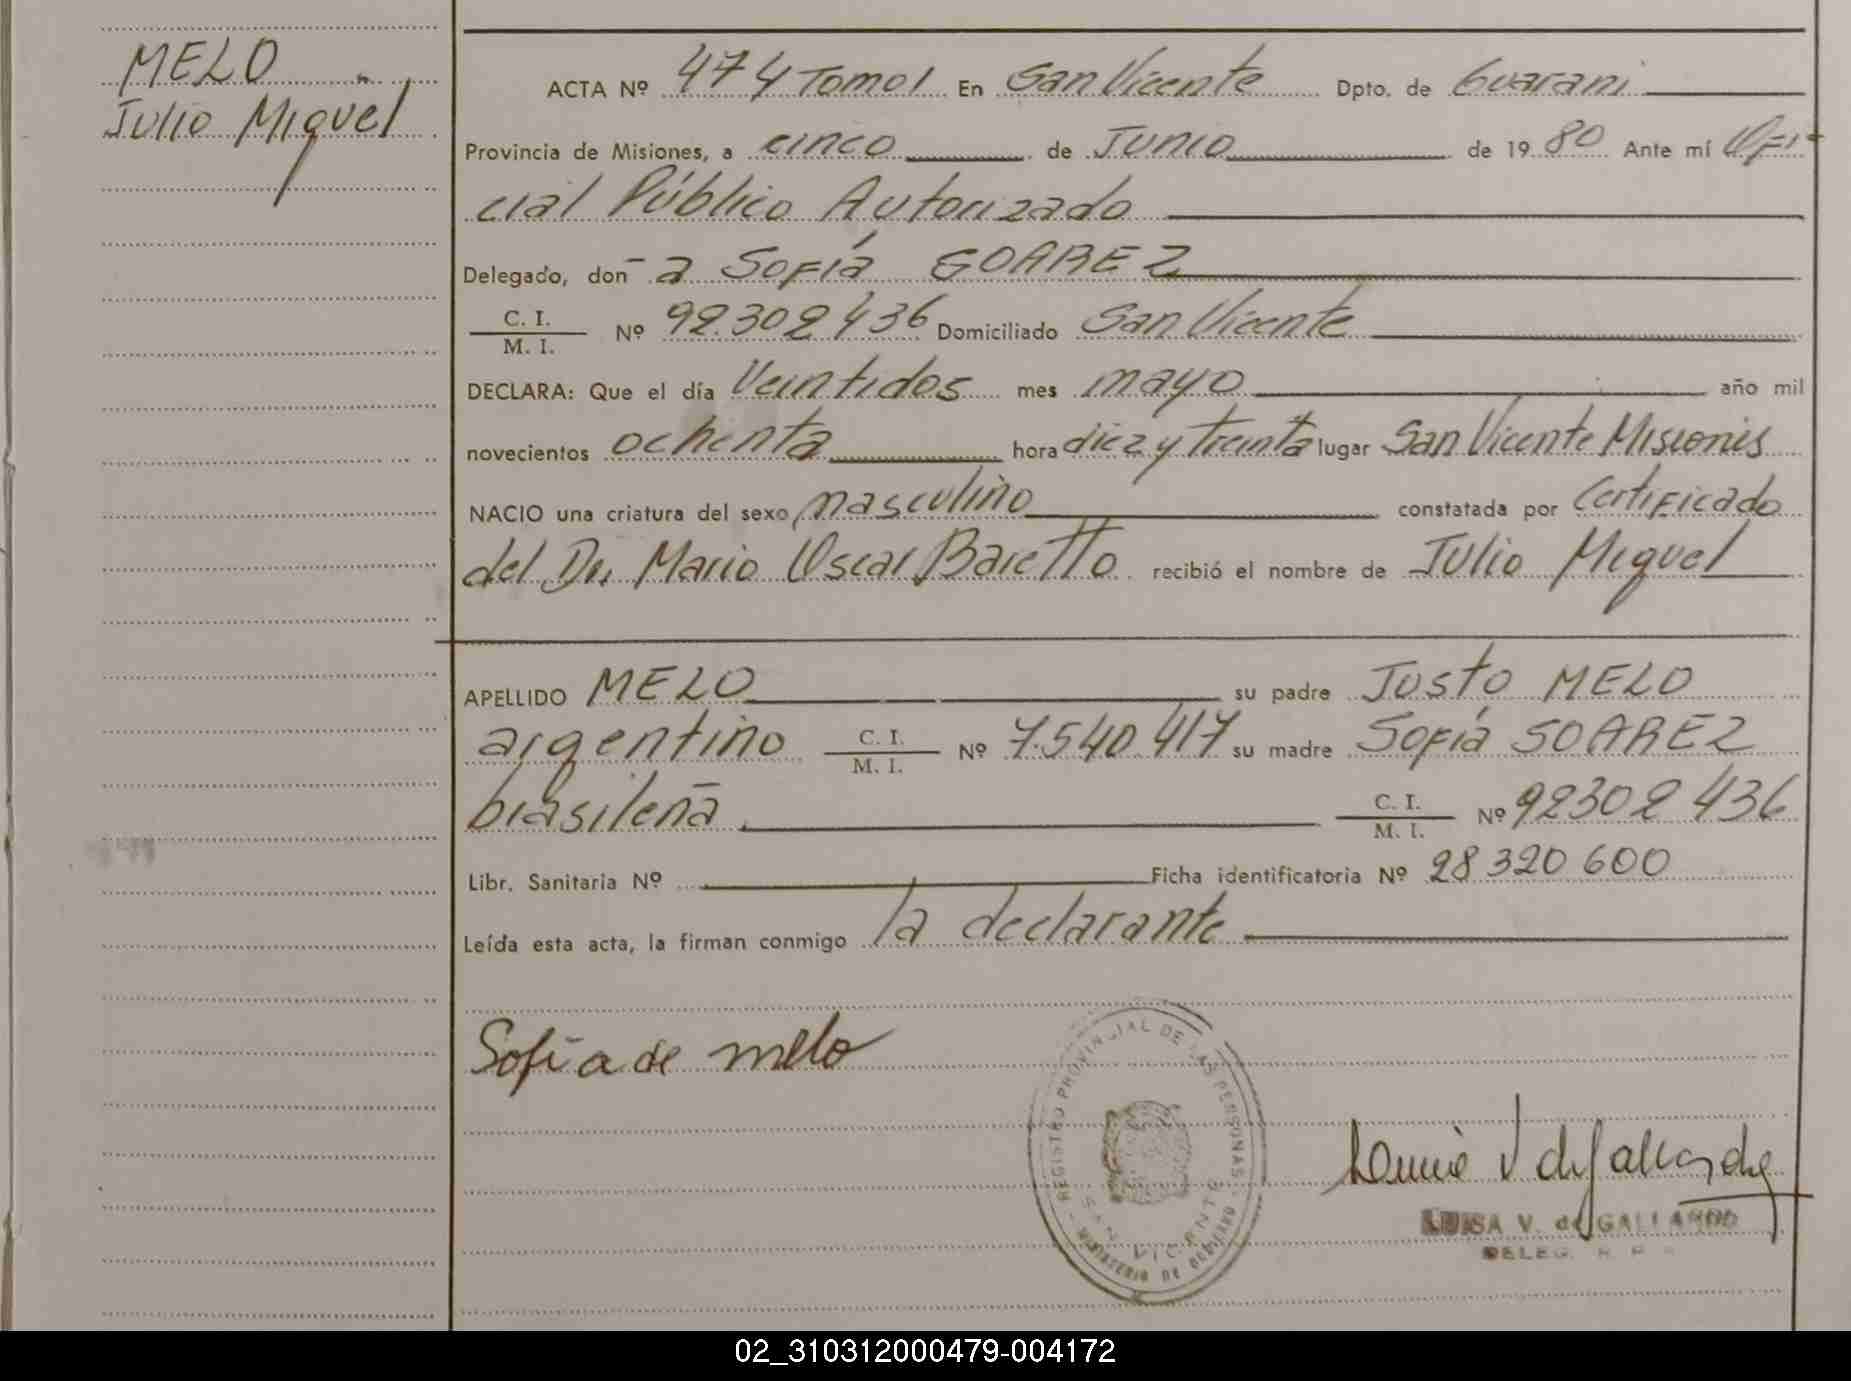 MELO
Julio Miguel
ACTA Nº 474 Tomo I En San Vicente Dpto. de Guarani
Provincia de Misiones, a cinco de Junio de 1980 Ante mí Ofi-
cial Público Autorizado
Delegado, don-a Sofía SOAREZ
C. I.
M. I.
Nº 92.302436 Domiciliado San Vicente
DECLARA: Que el día Veintidos mes mayo año mil
novecientos ochenta hora diez y treinta lugar San Vicente Misiones
NACIO una criatura del sexo masculino constatada por Certificado
del Dr. Mario Oscar Baretto recibió el nombre de Julio Miguel
APELLIDO MELO su padre Justo MELO
argentino C. I. / M. I. Nº 7.540.417 su madre Sofía SOAREZ
brasileña C. I. / M. I. Nº 92302436
Libr. Sanitaria Nº Ficha identificatoria Nº 28320600
Leída esta acta, la firman conmigo la declarante
Sofia de melo
REGISTRO PROVINCIAL DE LAS PERSONAS
SAN VICENTE
MINISTERIO DE GOBIERNO
LUISA V. de GALLARDO
DELEG. R. P.
02_310312000479-004172